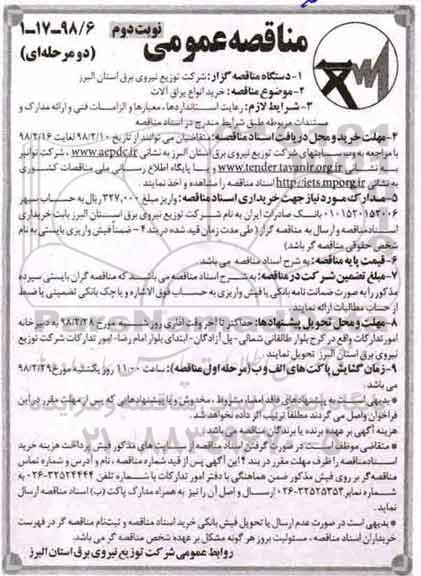 مناقصه عمومی
نوبت دوم
۱-۱۷-۹۸/۶
(دو مرحله‌ای)
۱- دستگاه مناقصه گزار: شرکت توزیع نیروی برق استان البرز
۲- موضوع مناقصه: خرید انواع یراق آلات
۳- شرایط لازم: رعایت استانداردها، معیارها و الزامات فنی و ارائه مدارک و
مستندات مربوطه طبق شرایط مندرج در اسناد مناقصه
۴- مهلت خرید و محل دریافت اسناد مناقصه: متقاضیان می توانند از تاریخ ۹۸/۲/۱۰ لغایت ۹۸/۲/۱۶
با مراجعه به وب سایتهای شرکت توزیع نیروی برق استان البرز به نشانی www.aepdc.ir ، شرکت توانیر
به نشانی www.tender.tavanir.org.ir و یا پایگاه اطلاع رسانی ملی مناقصات کشوری
به نشانی http://iets.mporg.ir اسناد مناقصه را مشاهده و اخذ نمایند.
۵- مدارک مورد نیاز جهت خریداری اسناد مناقصه: واریز مبلغ ۳۲۷,۰۰۰ ریال به حساب سپهر
۰۱۰۱۵۲۰۱۵۲۰۰۶ بانک صادرات ایران به نام شرکت توزیع نیروی برق استان البرز بابت خریداری
اسناد مناقصه و ارسال به مناقصه گزار (طی مدت زمان قید شده در بند ۴ - ضمناً فیش واریزی بایستی به نام
شخص حقوقی مناقصه گر باشد)
۶- قیمت پایه مناقصه: به شرح اسناد مناقصه می باشد.
۷- مبلغ تضمین شرکت در مناقصه: به شرح اسناد مناقصه می باشد که مناقصه گران بایستی سپرده
مذکور را به صورت ضمانت نامه بانکی یا فیش واریزی به حساب فوق الاشاره و یا چک بانکی تضمینی یا ضبط
از حساب مطالبات ارائه نمایند.
۸- مهلت و محل تحویل پیشنهادها: حداکثر تا آخر وقت اداری روز شنبه مورخ ۹۸/۲/۲۸ به دبیرخانه
امور تدارکات واقع در کرج بلوار طالقانی شمالی- پل آزادگان- ابتدای بلوار امام رضا- امور تدارکات شرکت توزیع
نیروی برق استان البرز تحویل نمایند.
۹- زمان گشایش پاکت های الف و ب (مرحله اول مناقصه): ساعت ۱۱:۰۰ روز یکشنبه مورخ ۹۸/۲/۲۹
می باشد.
بدیهی است به پیشنهادهای فاقد امضا، مشروط ، مخدوش و یا پیشنهادهایی که پس از مهلت مقرر در این
فراخوان واصل می گردند مطلقا ترتیب اثر داده نخواهد شد.
هزینه آگهی بر عهده برنده یا برندگان مناقصه می باشد.
* متقاضی موظف است در صورت گرفتن اسناد مناقصه از وب سایت های مذکور فیش پرداخت هزینه خرید
اسناد مناقصه را ظرف مهلت مقرر در بند ۴ این آگهی پس از قید شماره مناقصه ، نام و آدرس و شماره تماس
مناقصه گر بر روی فیش مذکور ضمن هماهنگی با دفتر امور تدارکات با شماره تلفن ۳۲۵۲۴۴۴۴-۰۲۶ به
شماره نمابر ۳۲۵۲۵۳۵۳-۰۲۶ ارسال و اصل آن را نیز به همراه مدارک پاکت (ب) اسناد مناقصه ارسال
نماید.
* بدیهی است در صورت عدم ارسال یا تحویل فیش بانکی خرید اسناد مناقصه و ثبت نام مناقصه گر در فهرست
خریداران اسناد مناقصه ، مسئولیت بروز هر گونه مشکل بر عهده شخص مناقصه گر می باشد.
روابط عمومی شرکت توزیع نیروی برق استان البرز